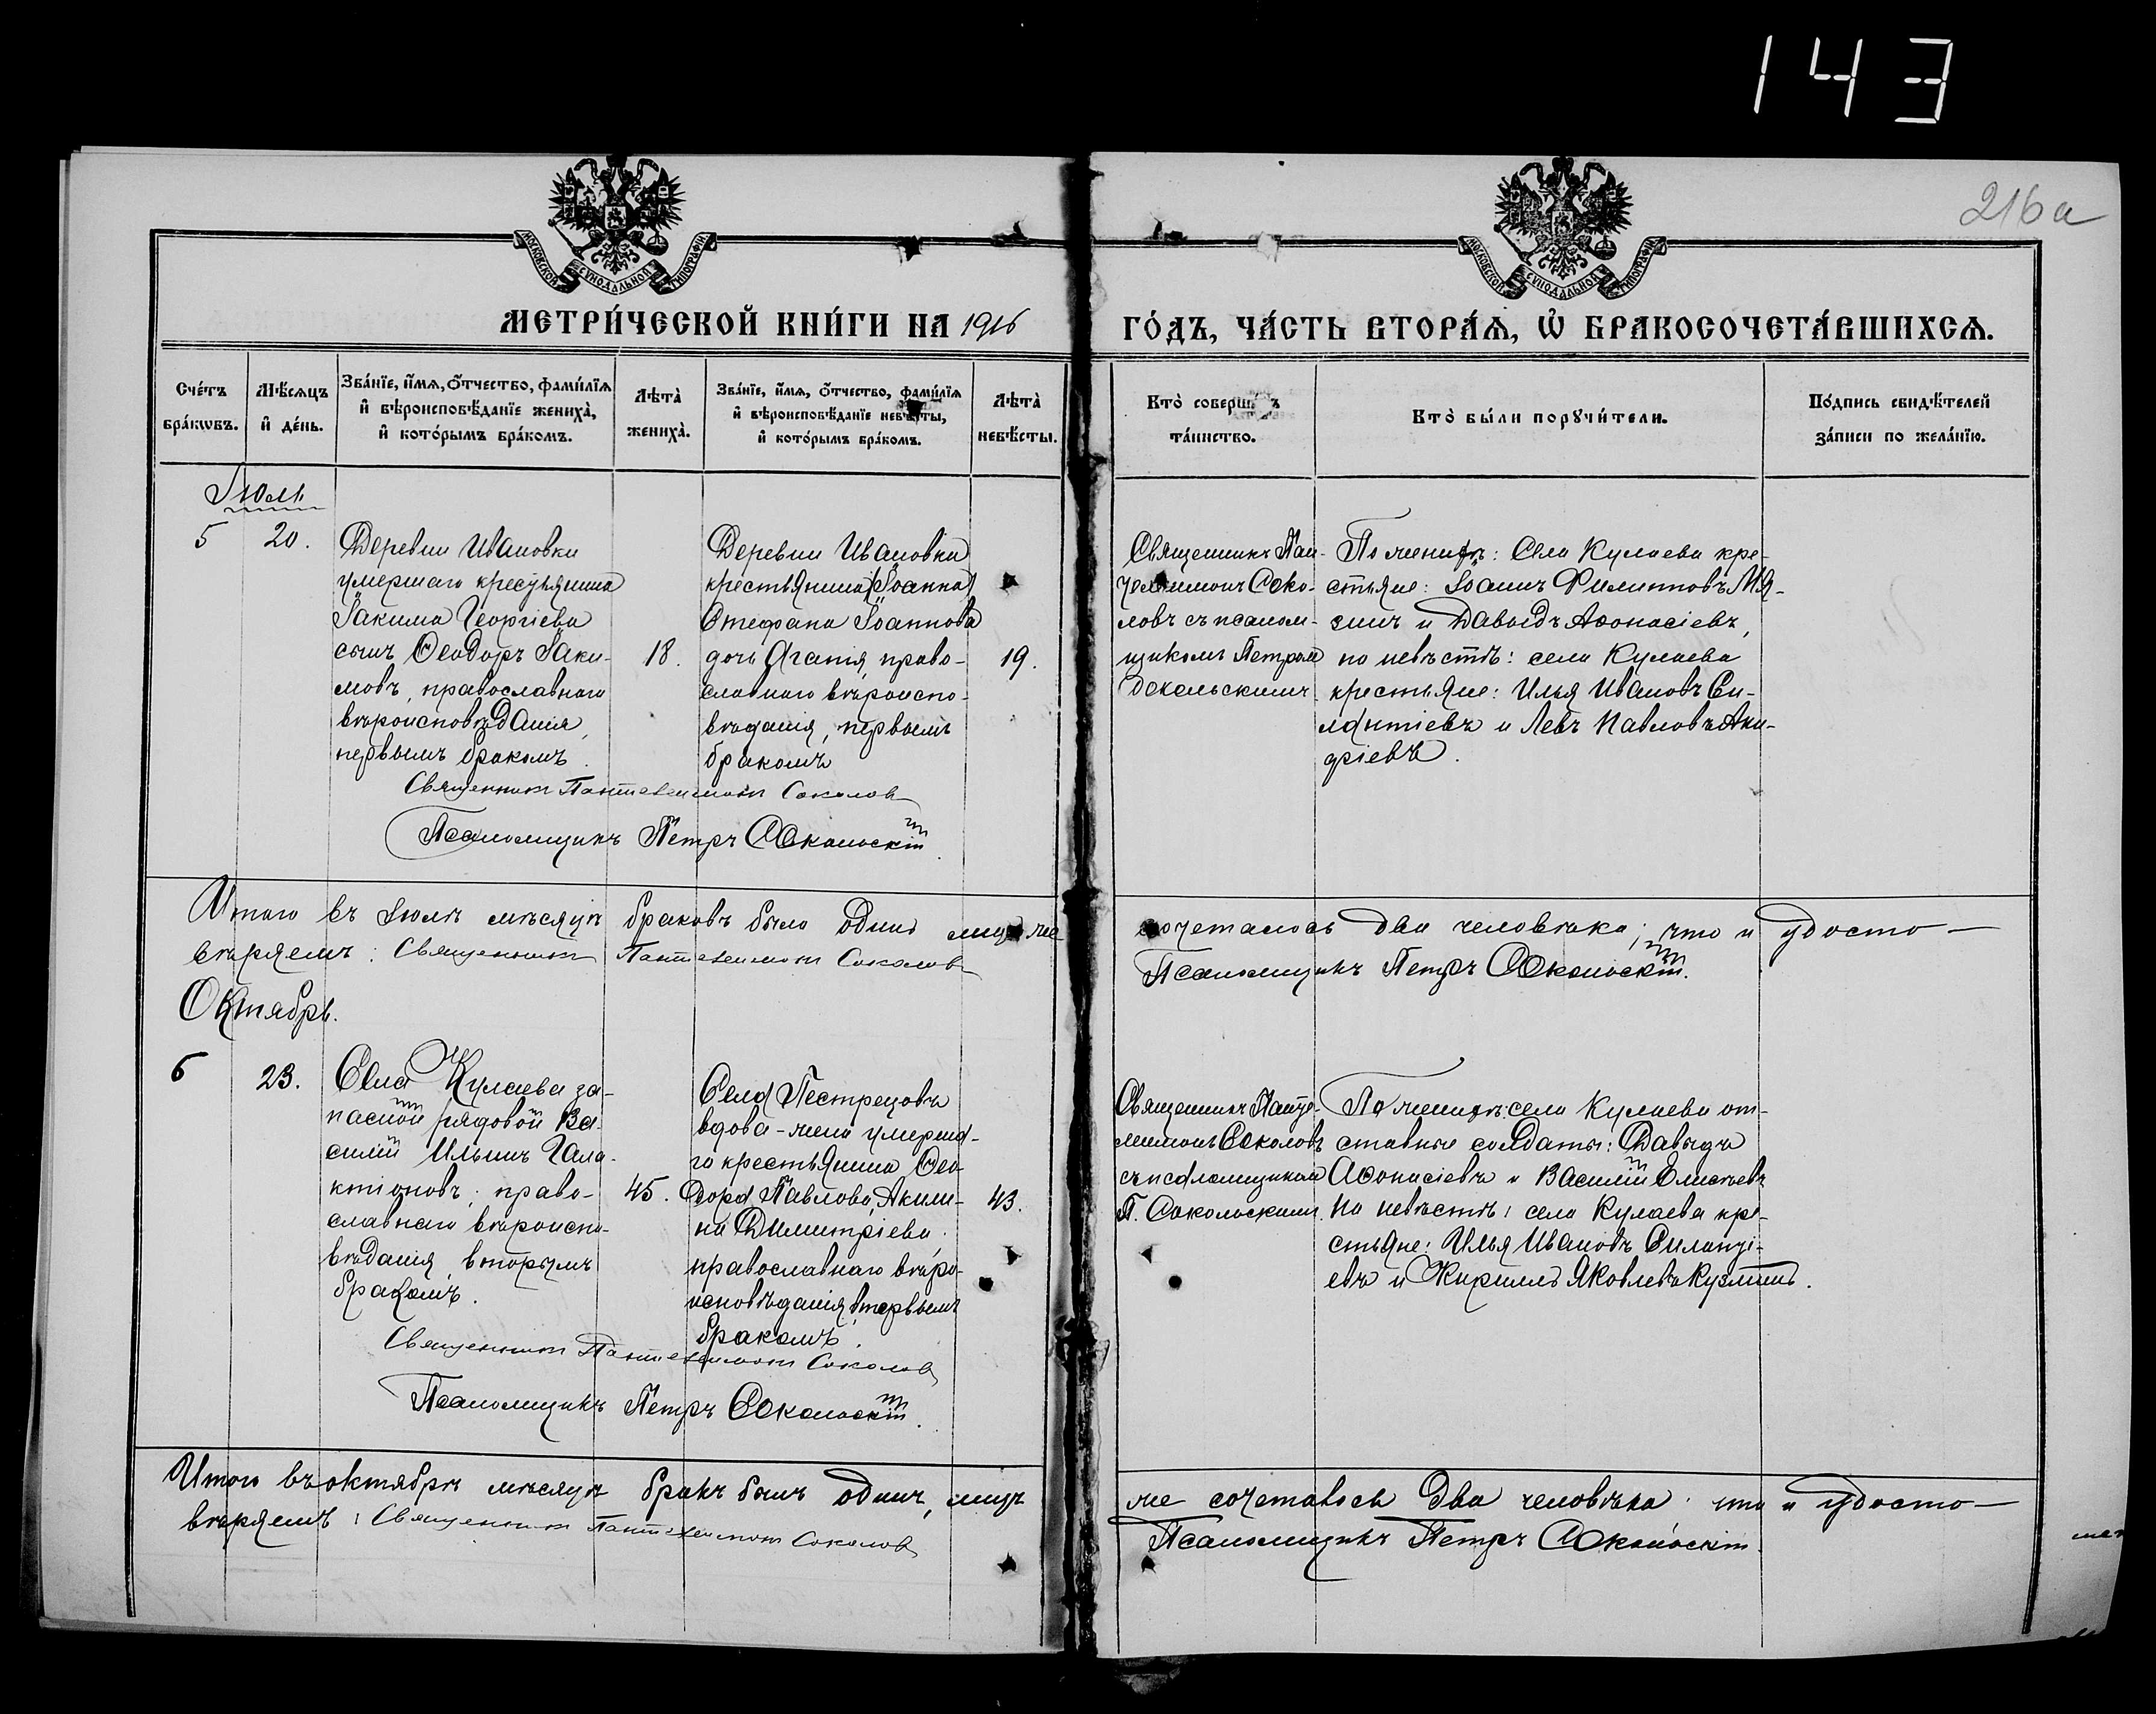 143
216а
МОСКОВСКОЙ СѴНОДАЛЬНОЙ ТИПОГРАФІИ.
МОСКОВСКОЙ СѴНОДАЛЬНОЙ ТИПОГРАФІИ.
МЕТРИ́ЧЕСКОЙ КНИ́ГИ НА 1916 ГО́ДЪ, ЧА́СТЬ ВТОРА́Ѧ, Ѡ҆ БРАКОСОЧЕТА́ВШИХСѦ.
Сче́тъ
бра́кѡвъ.
Мѣ́сѧцъ
и҆ де́нь.
Зва́нїе, и҆́мѧ, ѻ҆́тчество, фами́лїѧ
и҆ вѣроисповѣ́данїе жениха̀,
и҆ кото́рымъ бра́комъ.
Лѣта̀
жениха̀.
Зва́нїе, и҆́мѧ, ѻ҆́тчество, фами́лїѧ
и҆ вѣроисповѣ́данїе невѣ́сты,
и҆ кото́рымъ бра́комъ.
Лѣта̀
невѣ́сты.
Кто̀ соверш ъ
та́инство.
Кто̀ бы́ли порꙋчи́тели.
По́дпись свидѣ́телей
за́писи по жела́нїю.
Іюль
5
20.
Деревни Ивановки
умершаго крестьянина
Іакима Георгіева
сынъ Ѳеодоръ Іаки-
мовъ, православнаго
вѣроисповѣданія,
первымъ бракомъ.
18.
Деревни Ивановки
крестьянина (Іоанна)
Стефана Іоаннова
дочь Агапія, право-
славнаго вѣроиспо-
вѣданія, первымъ
бракомъ
19.
Священникъ Пан-
телеимонъ Соко-
ловъ съ псалом-
щикомъ Петромъ
Сокольскимъ
По женихѣ: Села Кулаева кре-
стьяне: Іоаннъ Филипповъ Мя-
зинъ и Давыдъ Аѳонасіевъ,
по невѣстѣ: села Кулаева
крестьяне: Илья Ивановъ Си-
лантіевъ и Левъ Павловъ Анд-
ріевъ.
Священникъ Пантелеимонъ Соколовъ
Псаломщикъ Петръ Сокольскій.
Итого въ Іюлѣ мѣсяцѣ браковъ было одинъ, лицъ же сочеталось два человѣка; что и удосто-
вѣряемъ: Священникъ Пантелеимонъ Соколовъ Псаломщикъ Петръ Сокольскій.
Октябрь.
6
23.
Села Кулаева за-
пасной рядовой Ва-
силій Ильинъ Гала-
ктіоновъ, право-
славнаго вѣроиспо-
вѣданія, вторымъ
бракомъ.
45.
Села Пестрецовъ
вдова-жена умерша-
го крестьянина Ѳео-
дора Павлова, Акили-
на Димитріева
православнаго вѣро-
исповѣданія, вторымъ
бракомъ.
43.
Священникъ Панте-
леимонъ Соколовъ
съ псаломщикомъ
П. Сокольскимъ.
По женихѣ: села Кулаева от-
ставные солдаты: Давыдъ
Аѳонасіевъ и Василій Елисѣевъ
по невѣстѣ: села Кулаева кре-
стьяне: Илья Ивановъ Силанті-
евъ и Кириллъ Яковлевъ Кузминъ.
Священникъ Пантелеимонъ Соколовъ
Псаломщикъ Петръ Сокольскій.
Итого въ октябрѣ мѣсяцѣ бракъ былъ одинъ, лицъ же сочеталось два человѣка; что и удосто-
вѣряемъ: Священникъ Пантелеимонъ Соколовъ Псаломщикъ Петръ Сокольскій